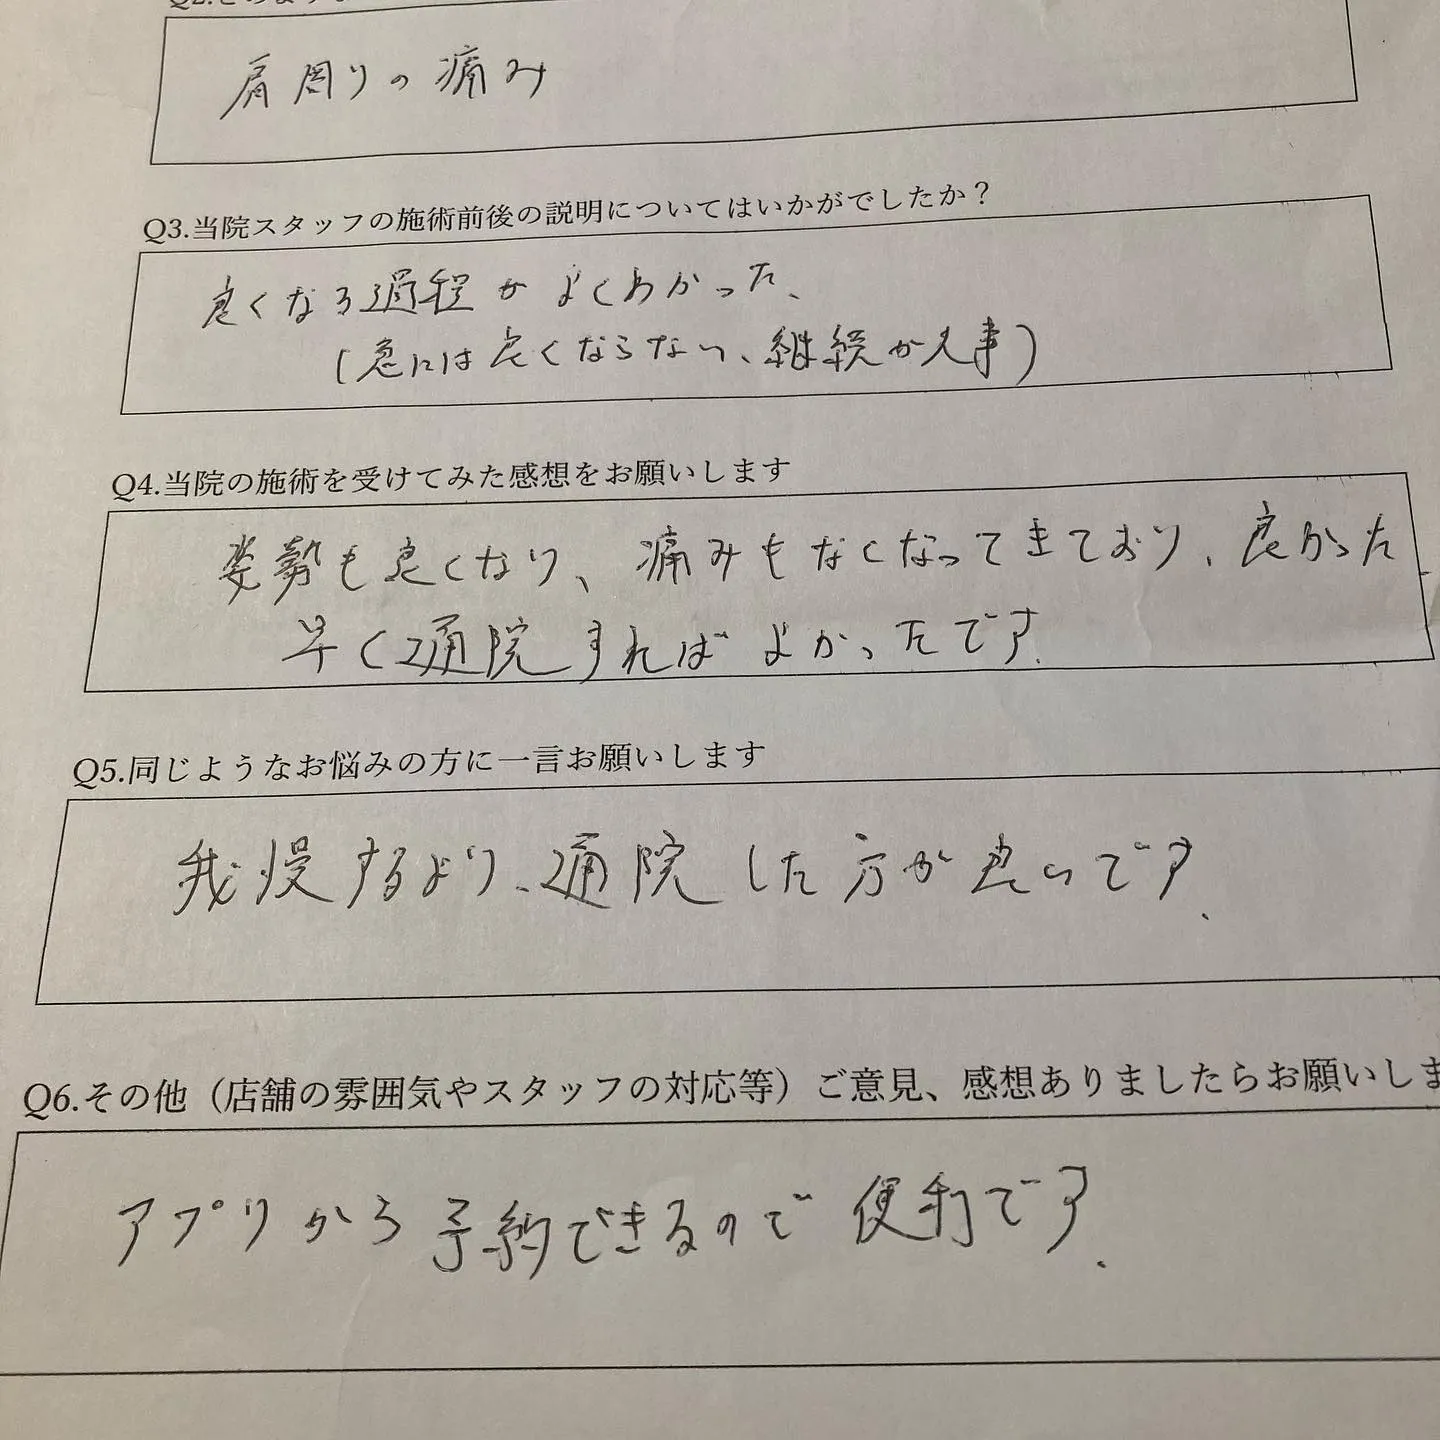 肩周りの痛み
Q3.当院スタッフの施術前後の説明についてはいかがでしたか？
良くなる過程がよくわかった、
（急には良くならない、継続が大事）
Q4.当院の施術を受けてみた感想をお願いします
姿勢も良くなり、痛みもなくなってきており、良かった
早く通院すればよかったです.
Q5.同じようなお悩みの方に一言お願いします
我慢するより、通院した方が良いです、
Q6.その他（店舗の雰囲気やスタッフの対応等）ご意見、感想ありましたらお願いしま
アプリから予約できるので便利です.